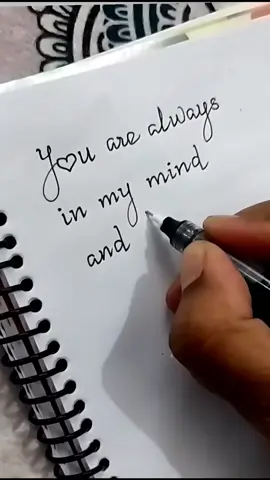 You are always
in my mind
and